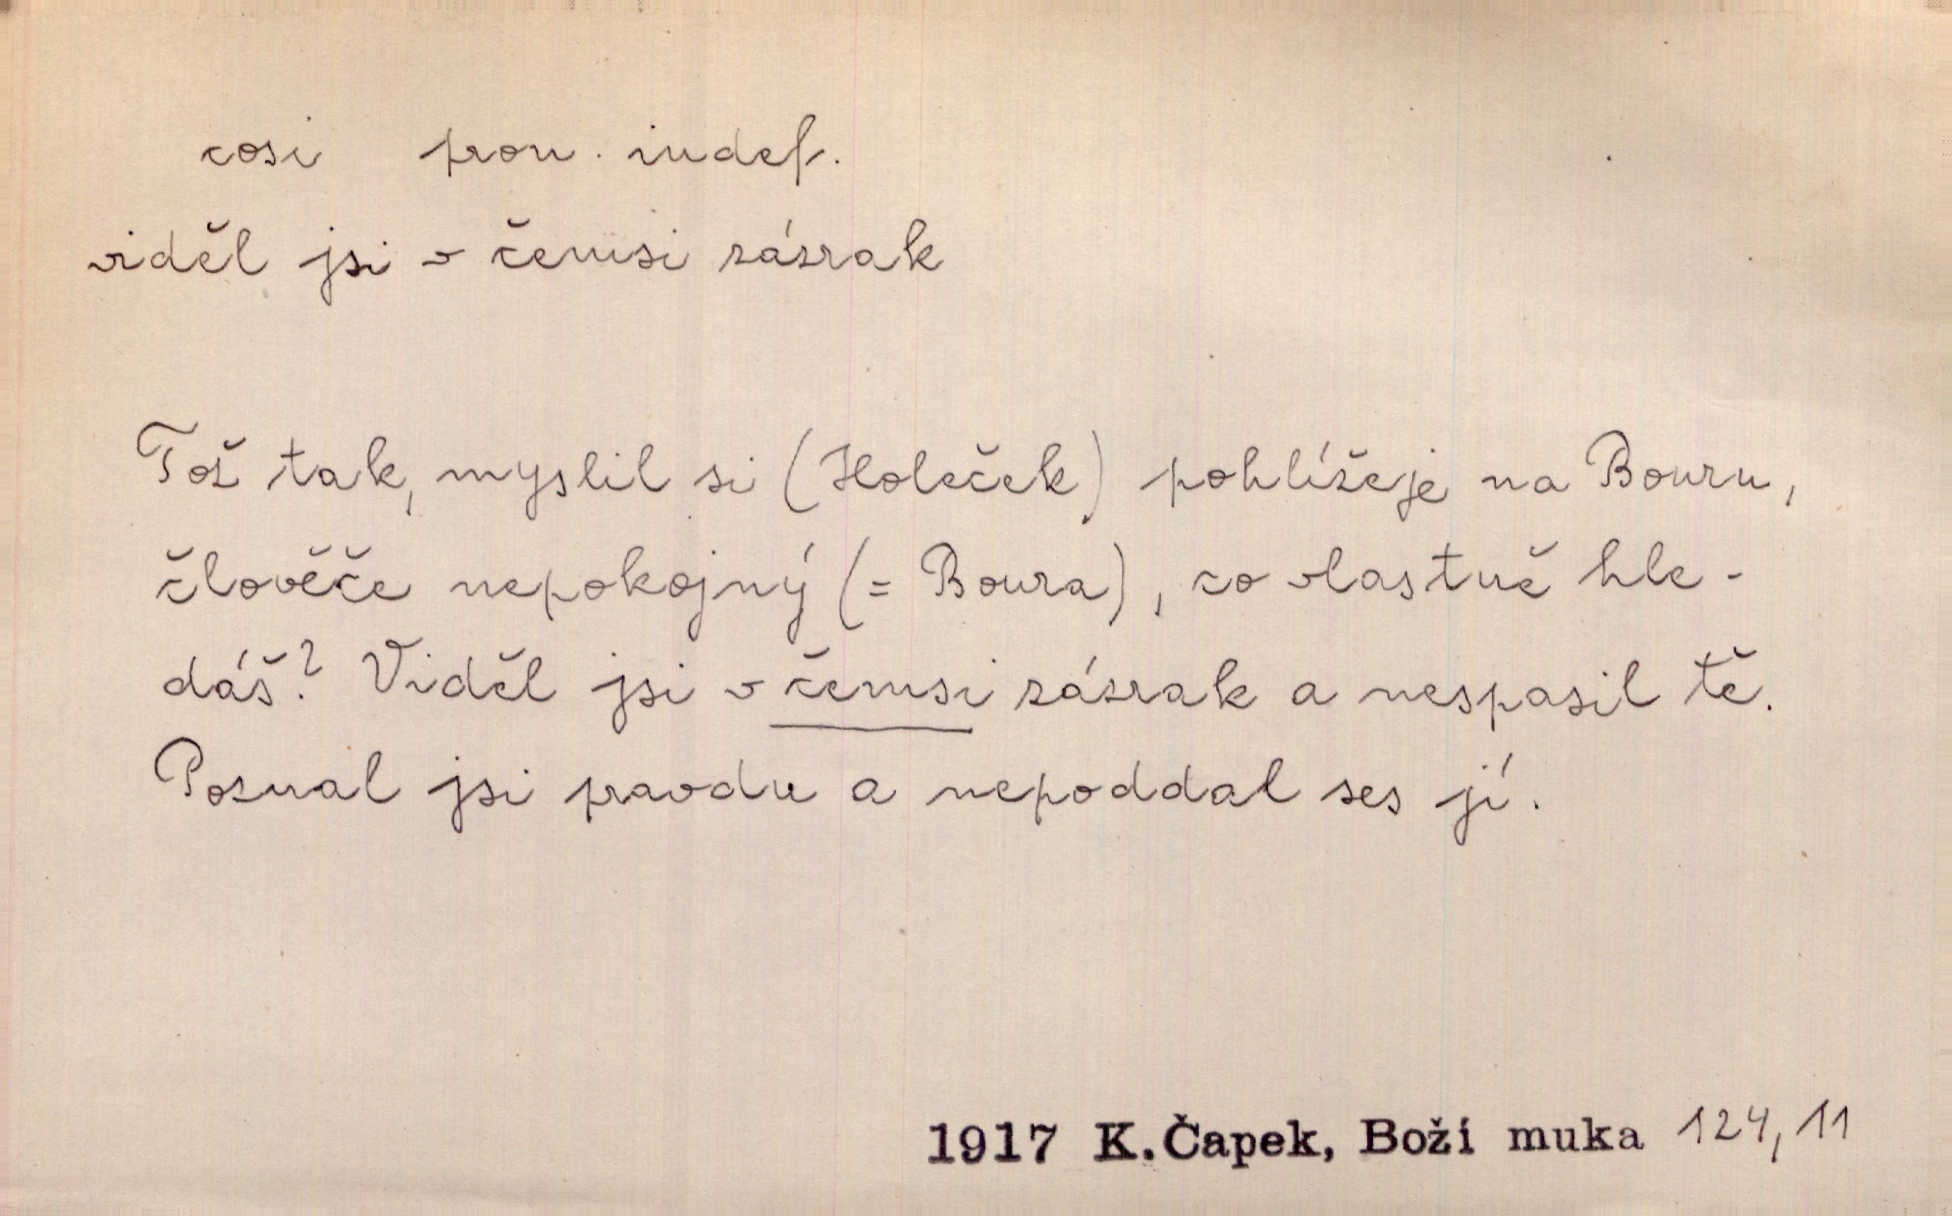 cosi pron. indef.
viděl jsi v čemsi zázrak
Tož tak, myslil si (Holeček) pohlížeje na Bouru,
člověče nepokojný (= Boura), co vlastně hle-
dáš? Viděl jsi v čemsi zázrak a nespasil tě.
Poznal jsi pravdu a nepoddal ses jí.
1917 K. Čapek, Boží muka 124, 11